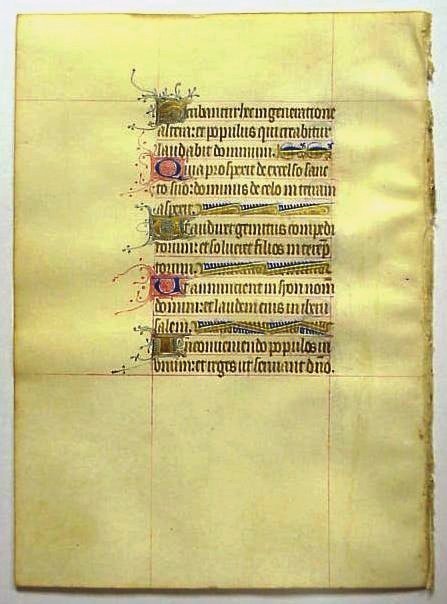 Scribantur hec in generatione
altera: et populus qui creabitur
laudabit dominum.
Quia prospexit de excelso sanc
to suo: dominus de celo in terram
aspexit.
Ut audiret gemitus compedi
torum: et solveret filios interemp
torum.
Ut annuncient in syon nom
domini: et laudem eius in iherlm
salem.
In conveniendo populos in
unum: et reges ut serviant dno.